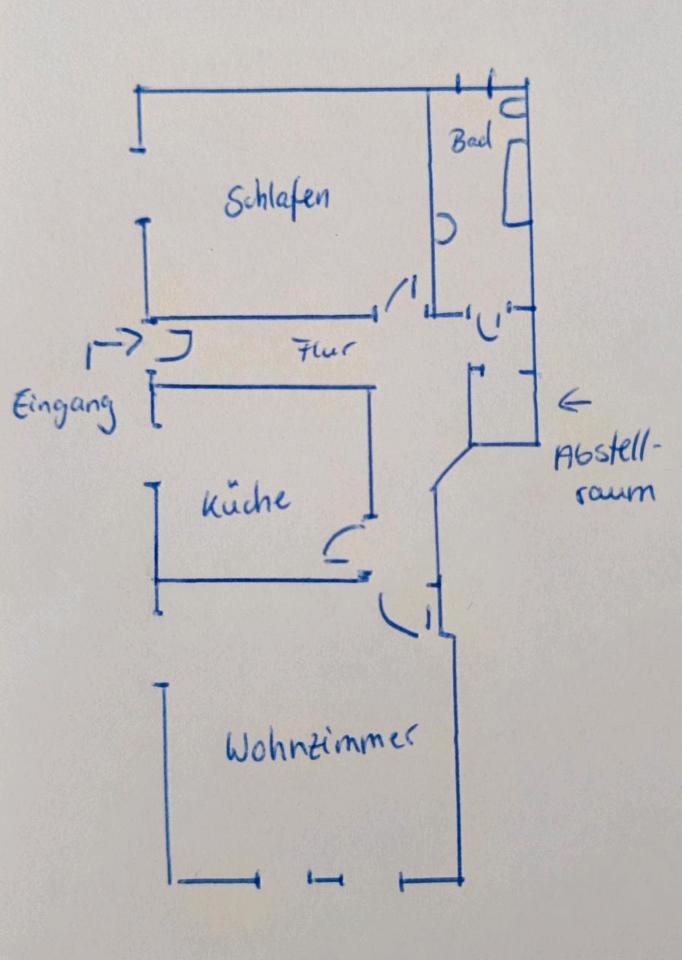 Bad
Schlafen
Flur
Eingang
Küche
Abstell-
raum
Wohnzimmer